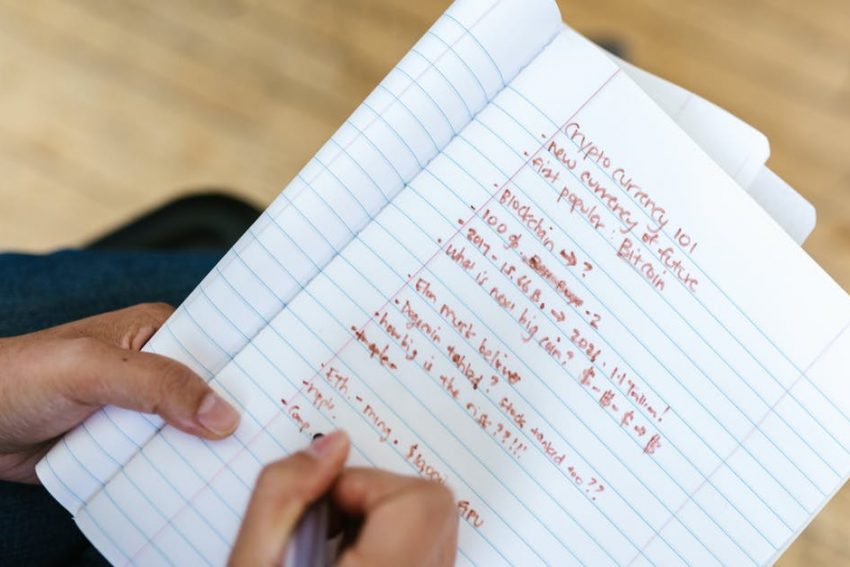 Crypto currency 101
- new currency of future
- First popular: Bitcoin
- Blockchain → ?
- 100 $ - 2
- 2017 - 15.66 B. → 2021. 1.1 Trillion!
- what is next big coin? $ - ₿ - $ → ₿
- Elon musk believe
- Dogecoin tanked? Stock tanked too??
- how big is the risk????!!!
- Eth. - ming. $1,000 GPU
- ripple.
- Comp.